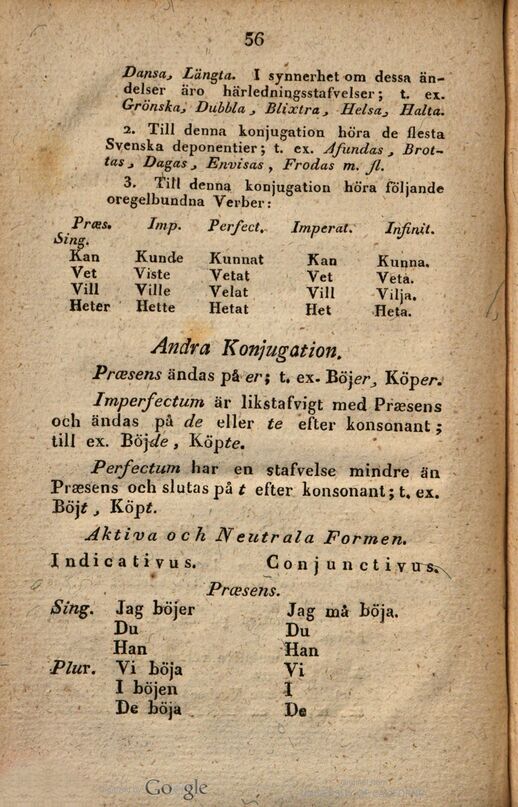 56
Dansa, Längta. I synnerhet om dessa än-
delser äro härledningsstafvelser; t. ex.
Grönska, Dubbla, Blixtra, Helsa, Halta.
2. Till denna konjugation höra de flesta
Svenska deponentier; t. ex. Afundas, Brot-
tas, Dagas, Envisas, Frodas m. fl.
3. Till denna konjugation höra följande
oregelbundna Verber:
Præs. Imp. Perfect. Imperat. Infinit.
Sing.
Kan Kunde Kunnat Kan Kunna.
Vet Viste Vetat Vet Veta.
Vill Ville Velat Vill Vilja.
Heter Hette Hetat Het Heta.
Andra Konjugation.
Præsens ändas på er; t. ex. Böjer, Köper.
Imperfectum är likstafvigt med Præsens
och ändas på de eller te efter konsonant;
till ex. Böjde, Köpte.
Perfectum har en stafvelse mindre än
Præsens och slutas på t efter konsonant; t. ex.
Böjt, Köpt.
Aktiva och Neutrala Formen.
Indicativus. Conjunctivus.
Præsens.
Sing. Jag böjer Jag må böja.
Du Du
Han Han
Plur. Vi böja Vi
I böjen I
De böja De
Google